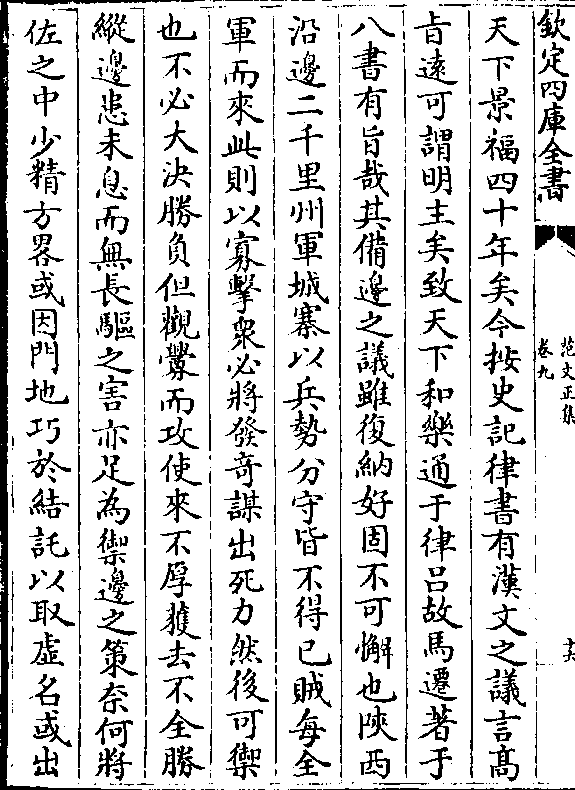 欽定四庫全書
范文正集
卷九
十六
天下景福四十年矣今按史記律書有漢文之議言髙
㫖逺可謂明主矣致天下和樂通于律吕故馬遷著于
八書有旨哉其備邊之議雖復納好固不可懈也陝西
沿邊二千里州軍城寨以兵勢分守皆不得已賊每全
軍而來此則以寡擊衆必將發竒謀出死力然後可禦
也不必大決勝負但觀釁而攻使來不厚獲去不全勝
縱邊患未息而無長驅之害亦足為禦邊之策奈何將
佐之中少精方畧或因門地巧於結託以取虛名或出